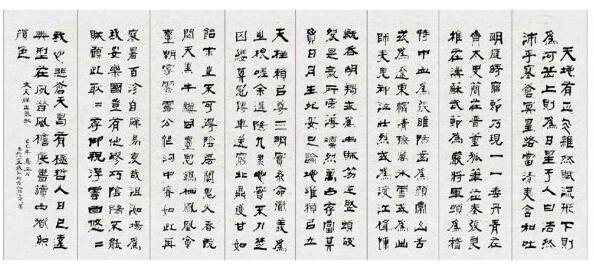 天地有正氣雜然賦流形下則
為河岳上則為日星於人曰浩然
沛乎塞蒼冥皇路當清夷含和吐
明庭時窮節乃現一一垂丹青在
齊太史簡在晉董狐筆在秦張良
椎在漢蘇武節為嚴將軍頭為嵇
侍中血為張睢陽齒為顏常山舌
或為遼東帽清操厲冰雪或為出
師表鬼神泣壯烈或為渡江楫慷
慨吞胡羯或為擊賊笏逆豎頭破
裂是氣所磅礴凜烈萬古存當其
貫日月生死安足論地維賴以立
天柱賴以尊三綱實系命道義為
之根嗟余遘陽九隸也實不力楚
囚纓其冠傳車送窮北鼎鑊甘如
飴求之不可得陰房闃鬼火春院
閟天黑牛驥同一皂雞棲鳳凰食
一朝蒙霧露分作溝中瘠如此再
寒暑百沴自辟易哀哉沮洳場為
我安樂國豈有他繆巧陰陽不能
賊顧此耿=存仰視浮雲白悠=
我心悲蒼天曷有極哲人日已遠
典型在夙昔風檐展書讀古道照
顏色
文天祥正氣歌